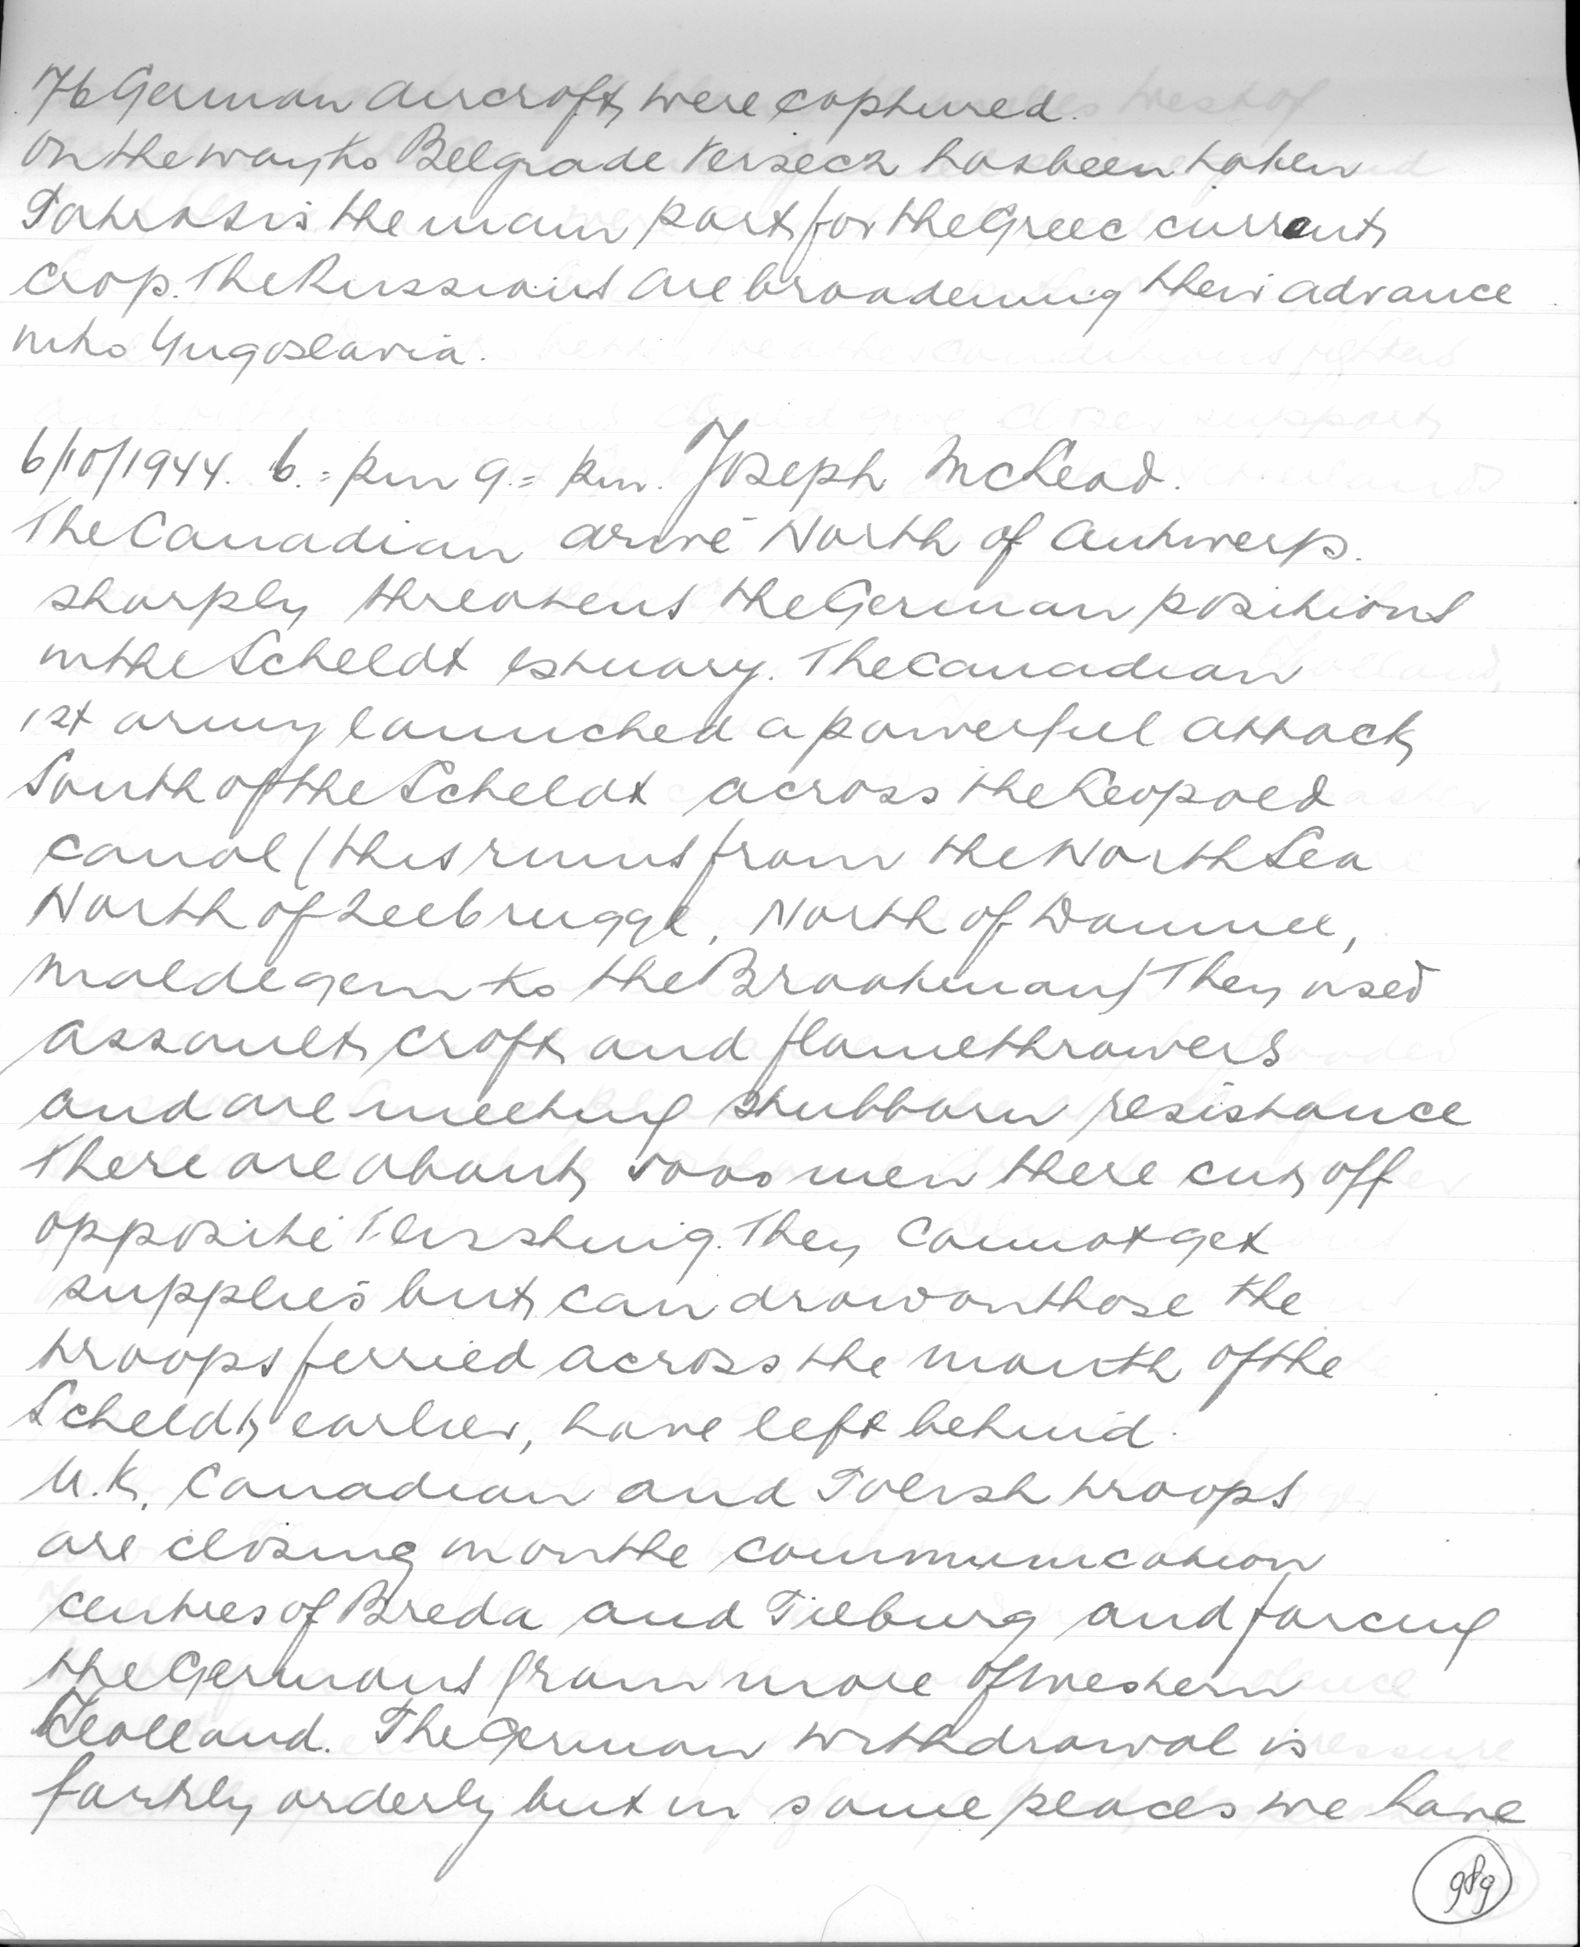 76 German aircraft were captured.
On the way to Belgrade Versecz has been taken
Patras is the main port for the Greec currant
crop. The Russians are broadening their advance
into Yugoslavia.
6/10/1944. 6.= pm 9.= pm. Joseph McLeod.
The Canadian drive North of Antwerp.
sharply threatens the German positions
in the Scheldt estuary. The Canadian
1st army launched a powerful attack
South of the Scheldt across the Leopold
canal (this runs from the North Sea
North of Zeebrugge, North of Damme,
Maldegem to the Braakman) They used
assault craft and flamethrowers
and are meeting stubborn resistance
There are about 5000 men there cut off
opposite Flushing. They cannot get
supplies but can draw on those the
troops ferried across the mouth of the
Scheldt earlier, have left behind.
U.K. Canadian and Polish troops
are closing in on the communication
centres of Breda and Tilburg and forcing
the Germans from more of western
Holland. The German withdrawal is
fairly orderly but in some places we have
989